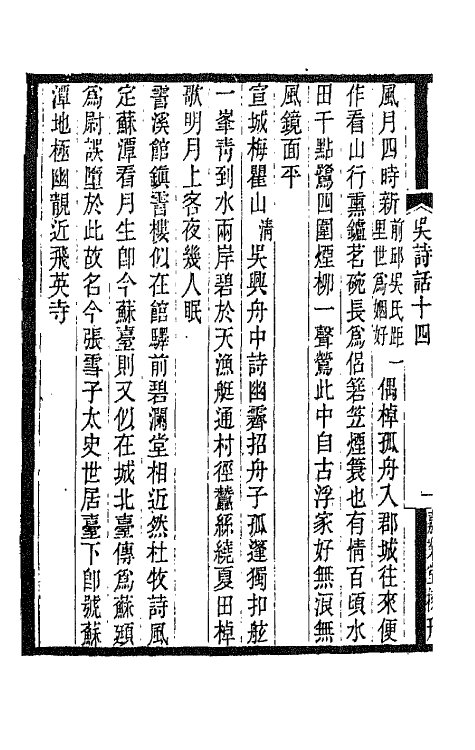 吳詩話十四
一
風月四時新前邱吳氏距一里世爲姻好偶棹孤舟入郡城往來便
作看山行熏鑪茗碗長爲侶箬笠煙蓑也有情百頃水
田千點鷺四圍煙柳一聲鶯此中自古浮家好無浪無
風鏡面平
宣城梅瞿山淸吳興舟中詩幽霽招舟子孤篷獨扣舷
一峯靑到水兩岸碧於天漁艇通村徑蠶絲繞夏田棹
歌明月上客夜幾人眠
霅溪館鎮霅樓似在館驛前碧瀾堂相近然杜牧詩風
定蘇潭看月生卽今蘇臺則又似在城北臺傳爲蘇頲
爲尉誤墮於此故名今張雪子太史世居臺下卽號蘇
潭地極幽靚近飛英寺